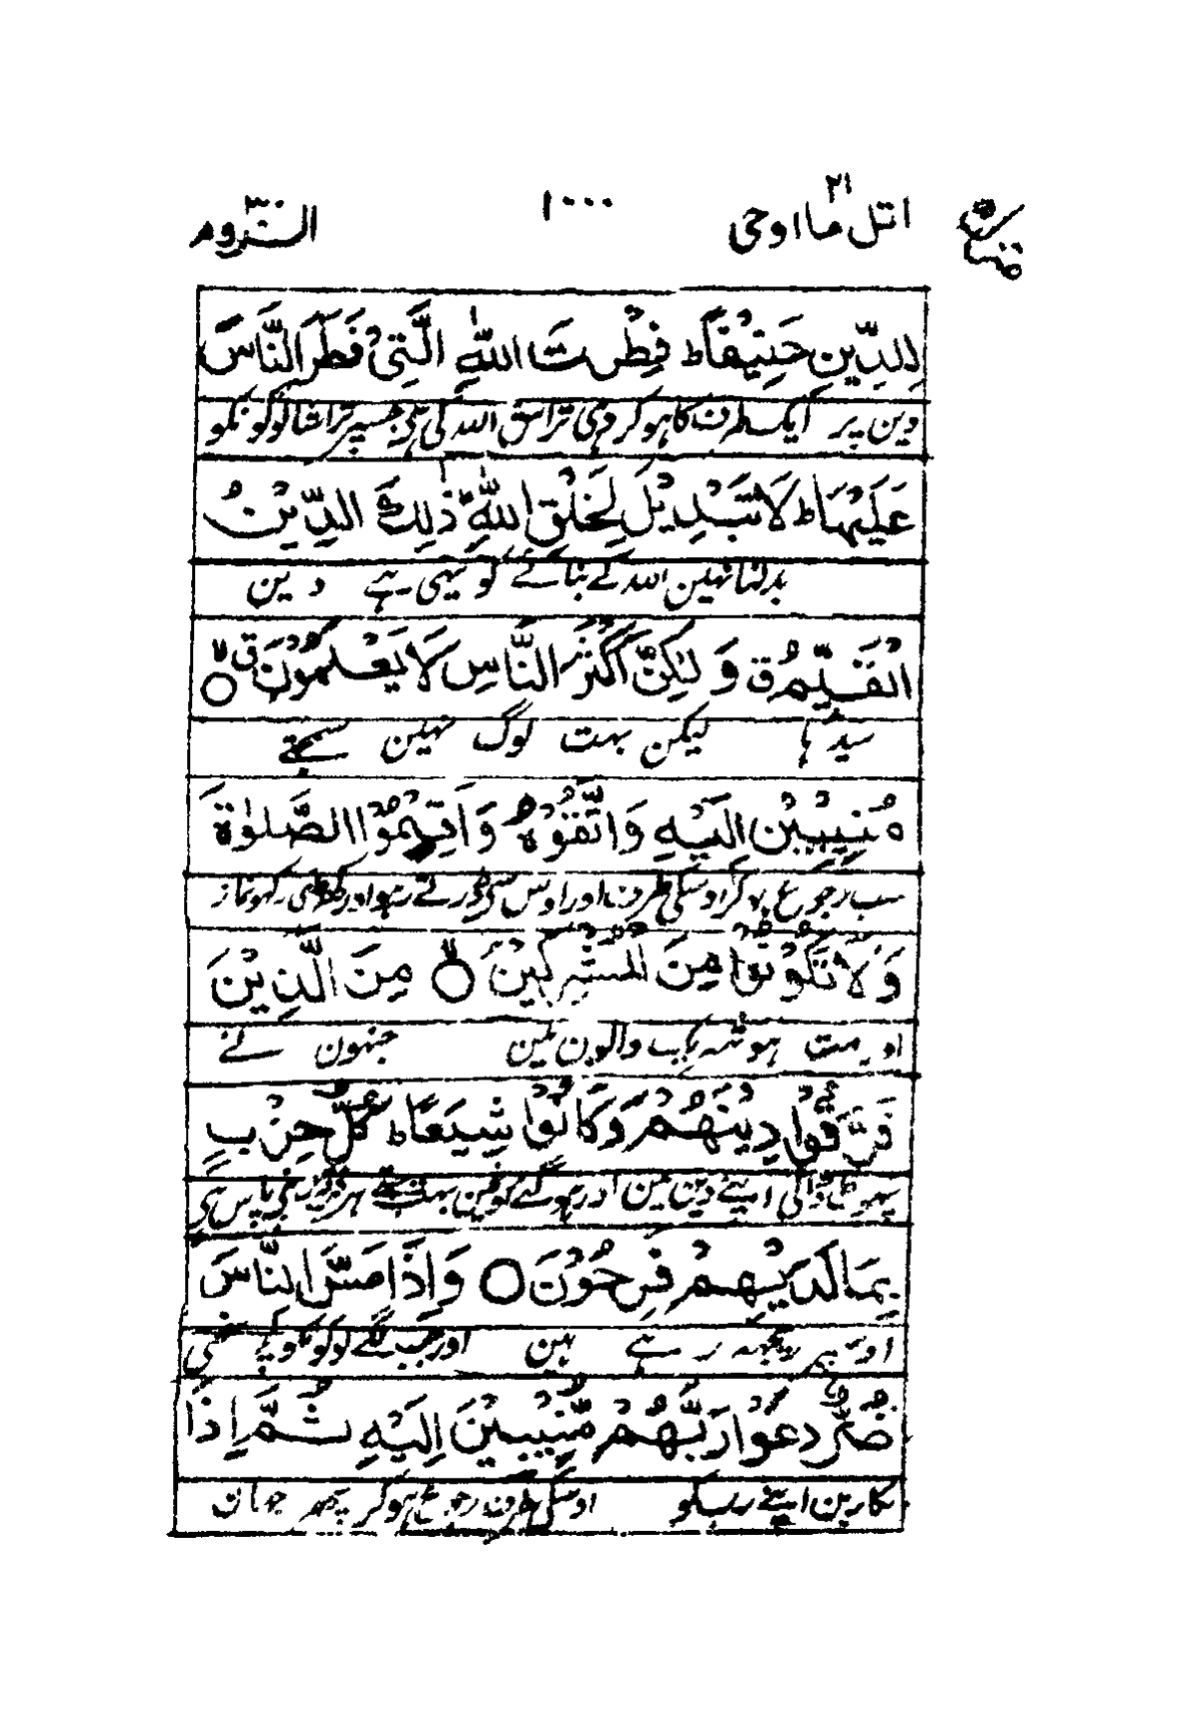 اتل ما اوحی ۲۱ ۱۰۰۰ الروم ۳۰
لِلدِّيْنِ حَنِيْفًا ط فِطْرَتَ اللّٰهِ الَّتِيْ فَطَرَ النَّاسَ
دین پر ایک طرف کا ہو کر وہی تراش اللہ کی جسپر تراشا لوگونکو
عَلَيْهَا ط لَا تَبْدِيْلَ لِخَلْقِ اللّٰهِ ط ذٰلِكَ الدِّيْنُ
بدلنا نہین اللہ کے بنائے کو یہی ہے دین
الْقَيِّمُ ق وَلٰكِنَّ اَكْثَرَ النَّاسِ لَا يَعْلَمُوْنَ ق ○
سیدہا لیکن بہت لوگ نہین سمجہتے
مُنِيْبِيْنَ اِلَيْهِ وَاتَّقُوْهُ وَاَقِيْمُوا الصَّلٰوةَ
سب رجوع ہو کر اوسکی طرف اور اوس سی ڈرتے رہو اور کھڑی رکہو نماز
وَلَا تَكُوْنُوْا مِنَ الْمُشْرِكِيْنَ ○ مِنَ الَّذِيْنَ
اور مت ہو شریک والون مین جنہون نے
فَرَّقُوْا دِيْنَهُمْ وَكَانُوْا شِيَعًا ط كُلُّ حِزْبٍ
پھوٹ ڈالی اپنے دین مین اور ہو گئے بہت ہر پاس ہی
بِمَا لَدَيْهِمْ فَرِحُوْنَ ○ وَاِذَا مَسَّ النَّاسَ
اوسپر ریجہ رہے ہین اور جب لگے لوگونکو کچہ سختی
ضُرٌّ دَعَوْا رَبَّهُمْ مُّنِيْبِيْنَ اِلَيْهِ ثُمَّ اِذَا
پکارین اپنے ربکو اوسکی طرف رجوع ہو کر پھر جہان